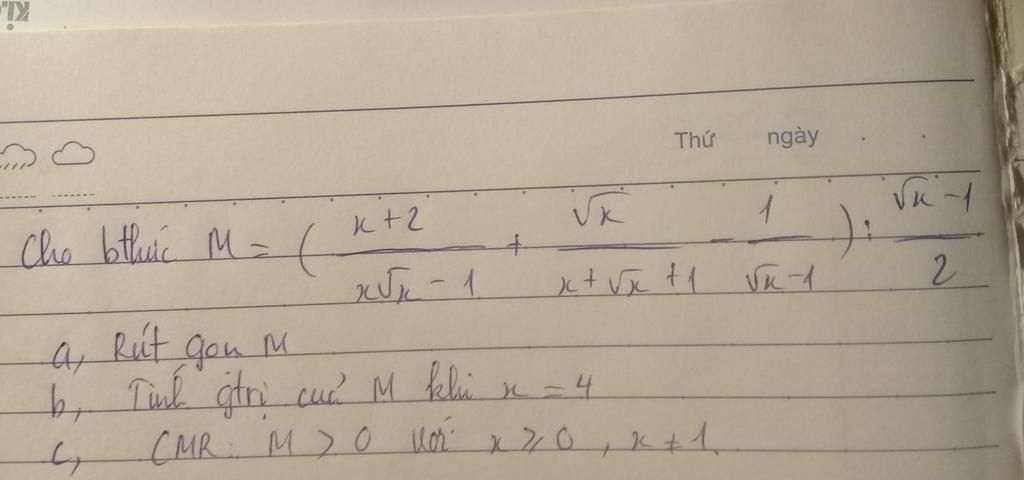 Thứ ngày
Cho bthức M = ( (x+2)/(x√x - 1) + √x/(x+√x+1) - 1/(√x-1) ) : (√x-1)/2
a, Rút gọn M
b, Tính gtrị của M khi x = 4
c, CMR: M > 0 với x ⩾ 0, x ≠ 1.